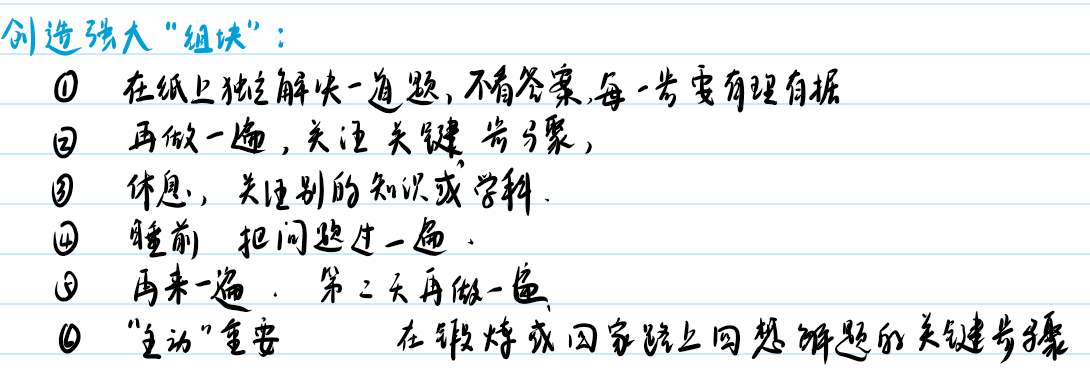 创造强大“组块”：
① 在纸上独立解决一道题，不看答案，每一步要有理有据
② 再做一遍，关注关键步骤，
③ 休息，关注别的知识或学科．
④ 睡前 把问题过一遍．
⑤ 再来一遍．第二天再做一遍
⑥ “主动”重要 在锻炼或回家路上回想解题的关键步骤